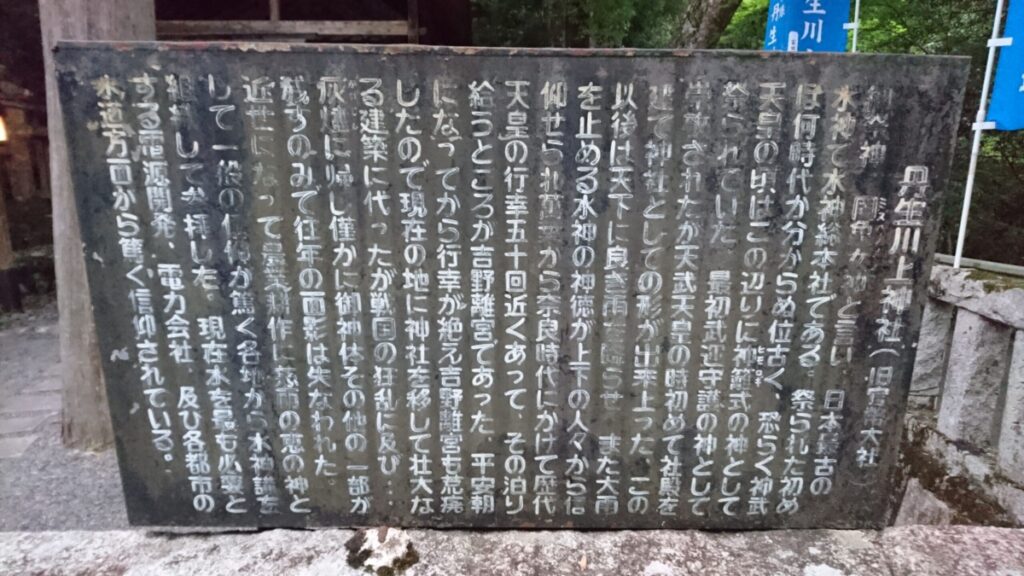 丹生川上神社（旧官幣大社）
御祭神 罔象女神と言い、日本最古の
水神で水神総本社である。祭られた初め
は何時代か分からぬ位古く、恐らく神武
天皇の頃はこの辺りに神籬式の神として
祭られていた。最初武運守護の神として
されたが天武天皇の時初めて社殿を
建て神社としての形が出来上った。この
以後は天下に良き雨を降らせ、また大雨
を止める水神の神徳が上下の人々から信
仰せられ から奈良時代にかけて歴代
天皇の行幸五十回近くあって、その泊り
給うところが吉野離宮であった。平安朝
になってから行幸が絶え吉野離宮も荒廃
したので現在の地に神社を移して壮大な
る建築に代ったが戦国の狂乱に及び…
灰燼に帰し僅かに御神体その他の一部が
残すのみで往年の面影は失なわれた。
近世になって農業耕作に慈雨の恵の神と
して一般の信仰が篤く各地から水神講を
組織して参拝した。現在水を最も必要と
する電源開発、電力会社、及び各都市の
水道方面から篤く信仰されている。
生川
丹生